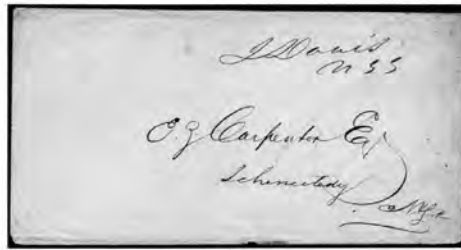 J Davis
USS
O. G Carpenter Esq
Schenectady
N.Y.